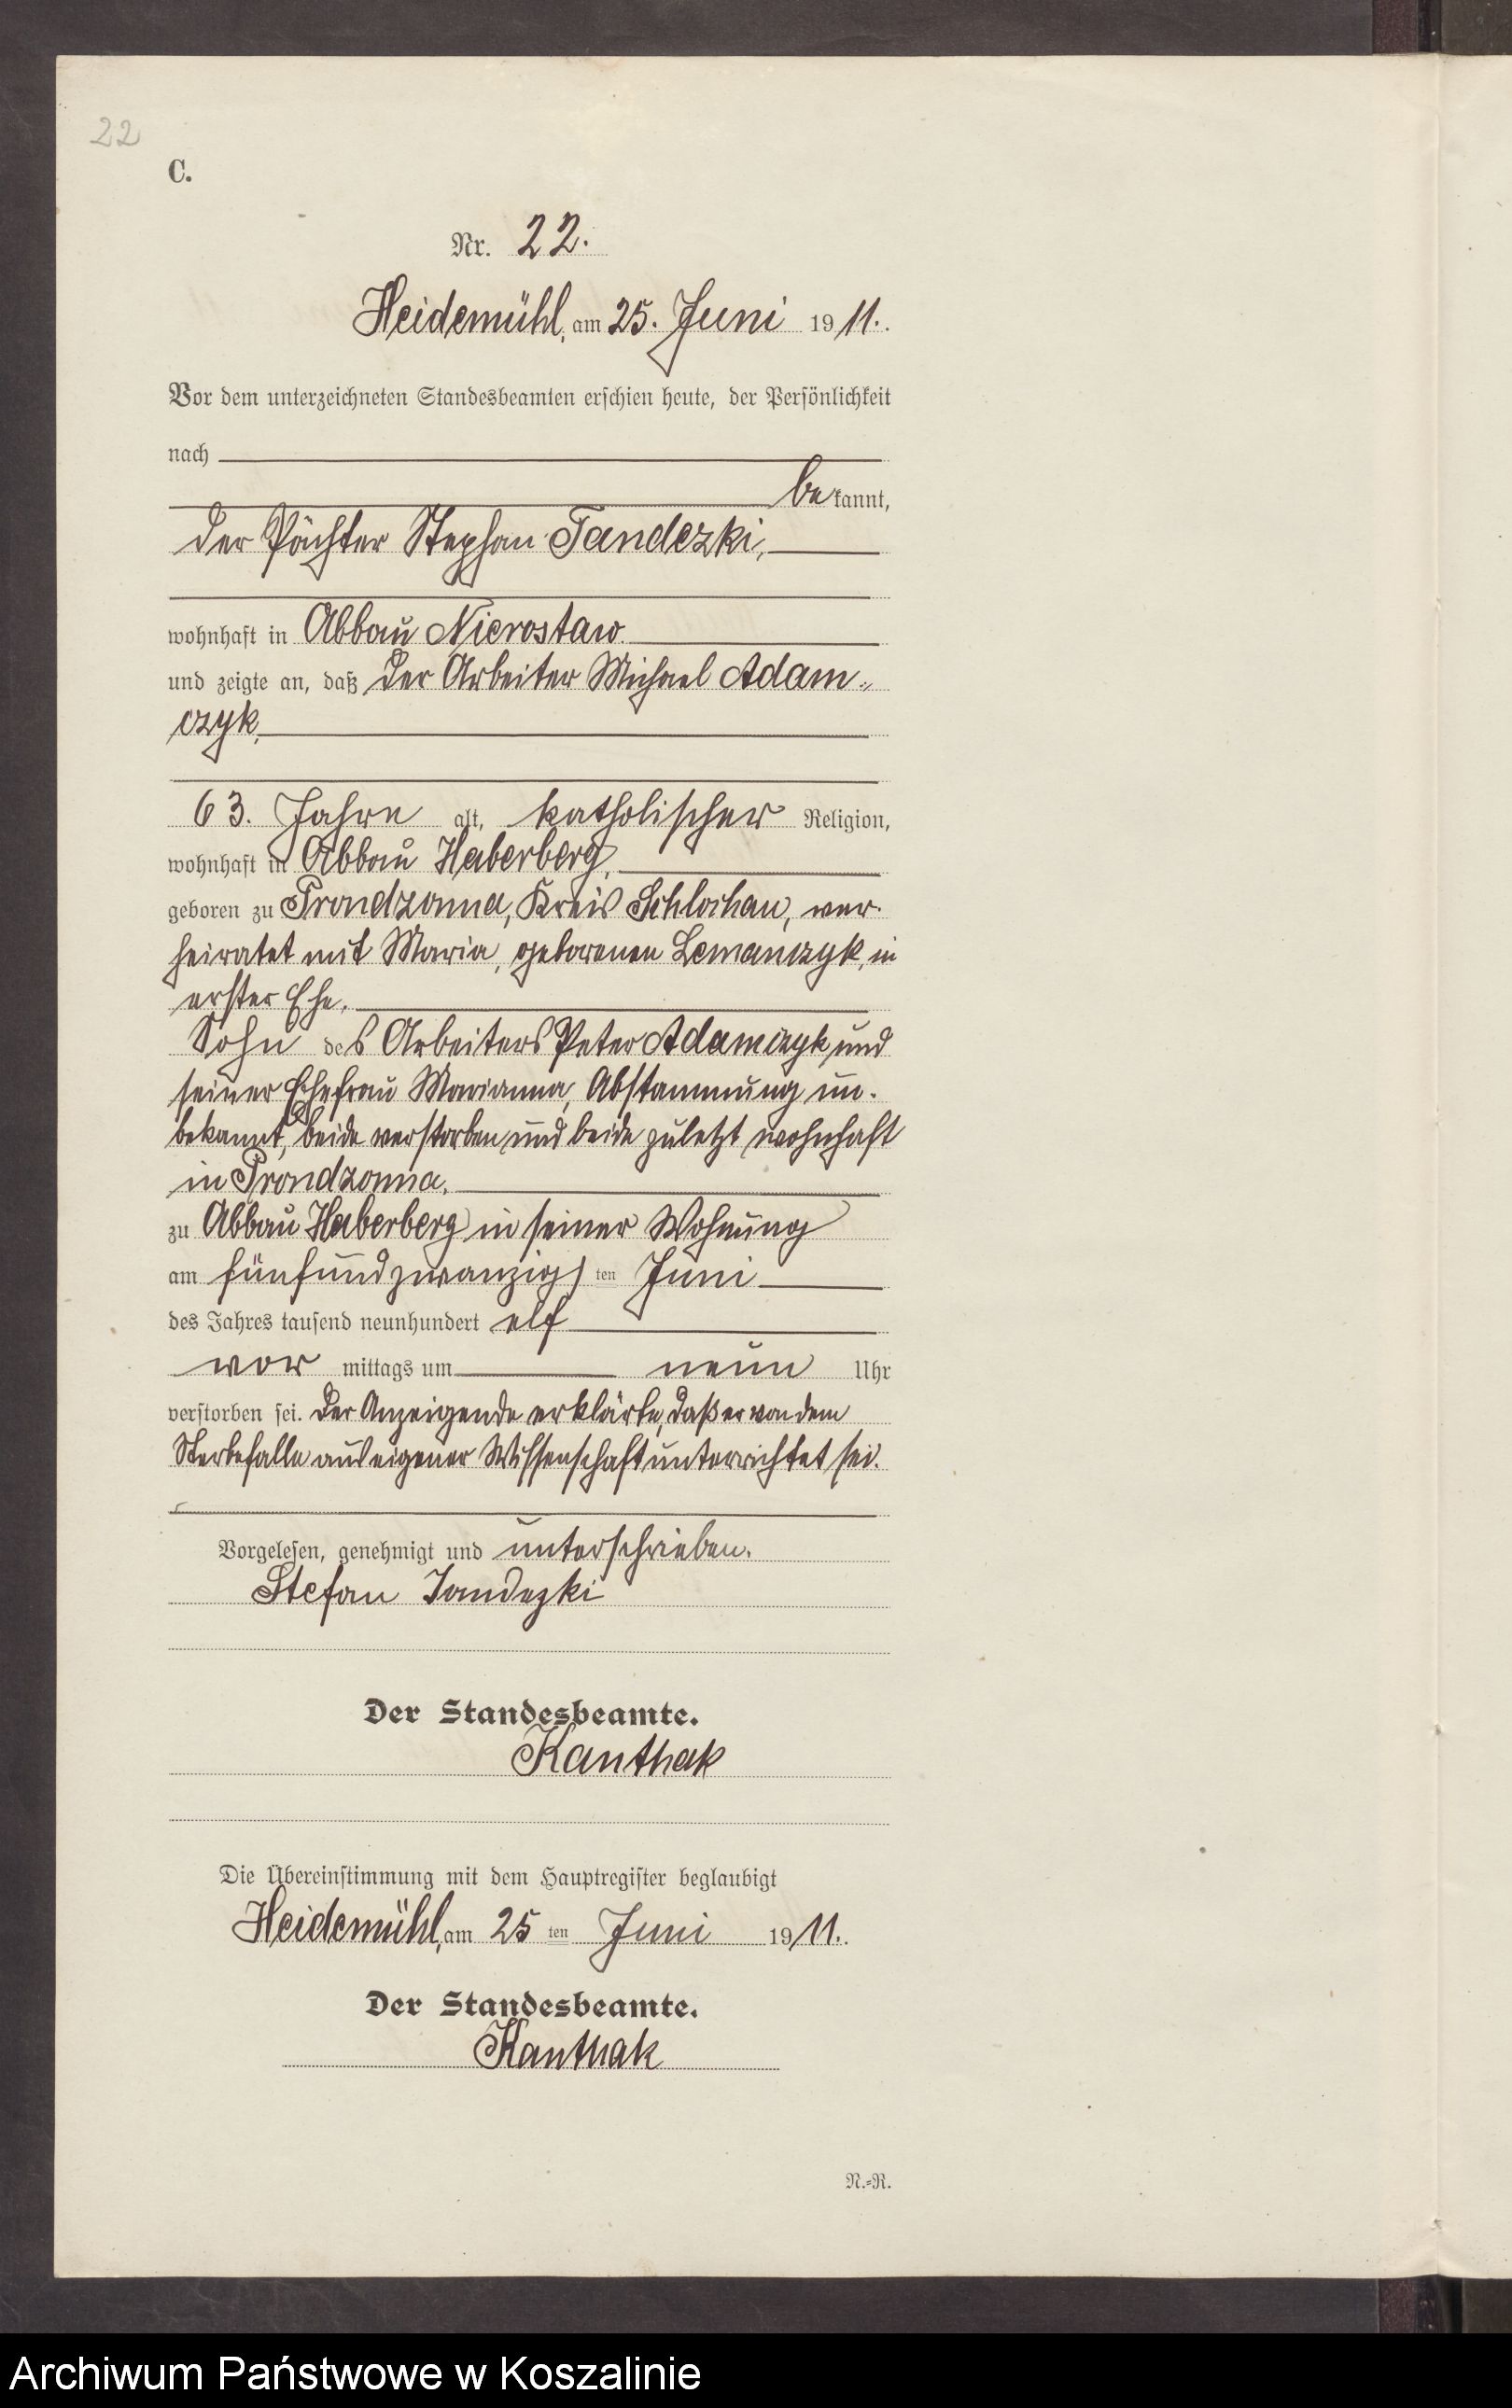 22
C.
Nr. 22.
Heidemühl, am 25. Juni 1911.
Vor dem unterzeichneten Standesbeamten erschien heute, der Persönlichkeit
nach
bekannt,
der Pächter Stephan Tandezki,
wohnhaft in Abbau Nierostaw.
und zeigte an, daß der Arbeiter Michael Adam-
czyk,
63. Jahre alt, katholischer Religion,
wohnhaft in Abbau Haberberg,
geboren zu Prondzonna, Kreis Schlochau, ver-
heiratet mit Maria, geborenen Lemanczyk, in
erster Ehe.
Sohn des Arbeiters Peter Adamczyk und
seiner Ehefrau Marianna, Abstammung un-
bekannt, beide verstorben und beide zuletzt wohnhaft
in Prondzonna.
zu Abbau Haberberg in seiner Wohnung
am fünfundzwanzigsten Juni
des Jahres tausend neunhundert elf
vor mittags um neun Uhr
verstorben sei. Der Anzeigende erklärte, daß er von dem
Sterbefalle aus eigener Wissenschaft unterrichtet sei.
Vorgelesen, genehmigt und unterschrieben.
Stefan Tandezki
Der Standesbeamte.
Kanthak
Die Übereinstimmung mit dem Hauptregister beglaubigt
Heidemühl, am 25 ten Juni 1911.
Der Standesbeamte.
Kanthak
N.-R.
Archiwum Państwowe w Koszalinie